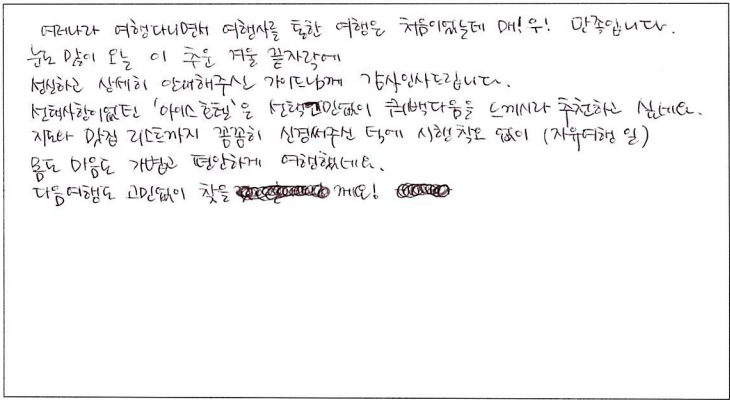 여러나라 여행다니면서 여행사를 통한 여행은 처음이었는데 매!우! 만족입니다.
눈도 많이 오늘 이 추운 겨울 끝자락에
성실하고 상세히 안내해주신 가이드님께 감사인사드립니다.
선택사항이었던 '아이스호텔'은 선택고민없이 퀘백다움을 느끼시라 추천하고 싶네요.
지도와 맛집 리스트까지 꼼꼼히 신경써주신 덕에 시행착오 없이 (자유여행 일)
몸도 마음도 가볍고 편안하게 여행했네요.
다음여행도 고민없이 찾을 께요!